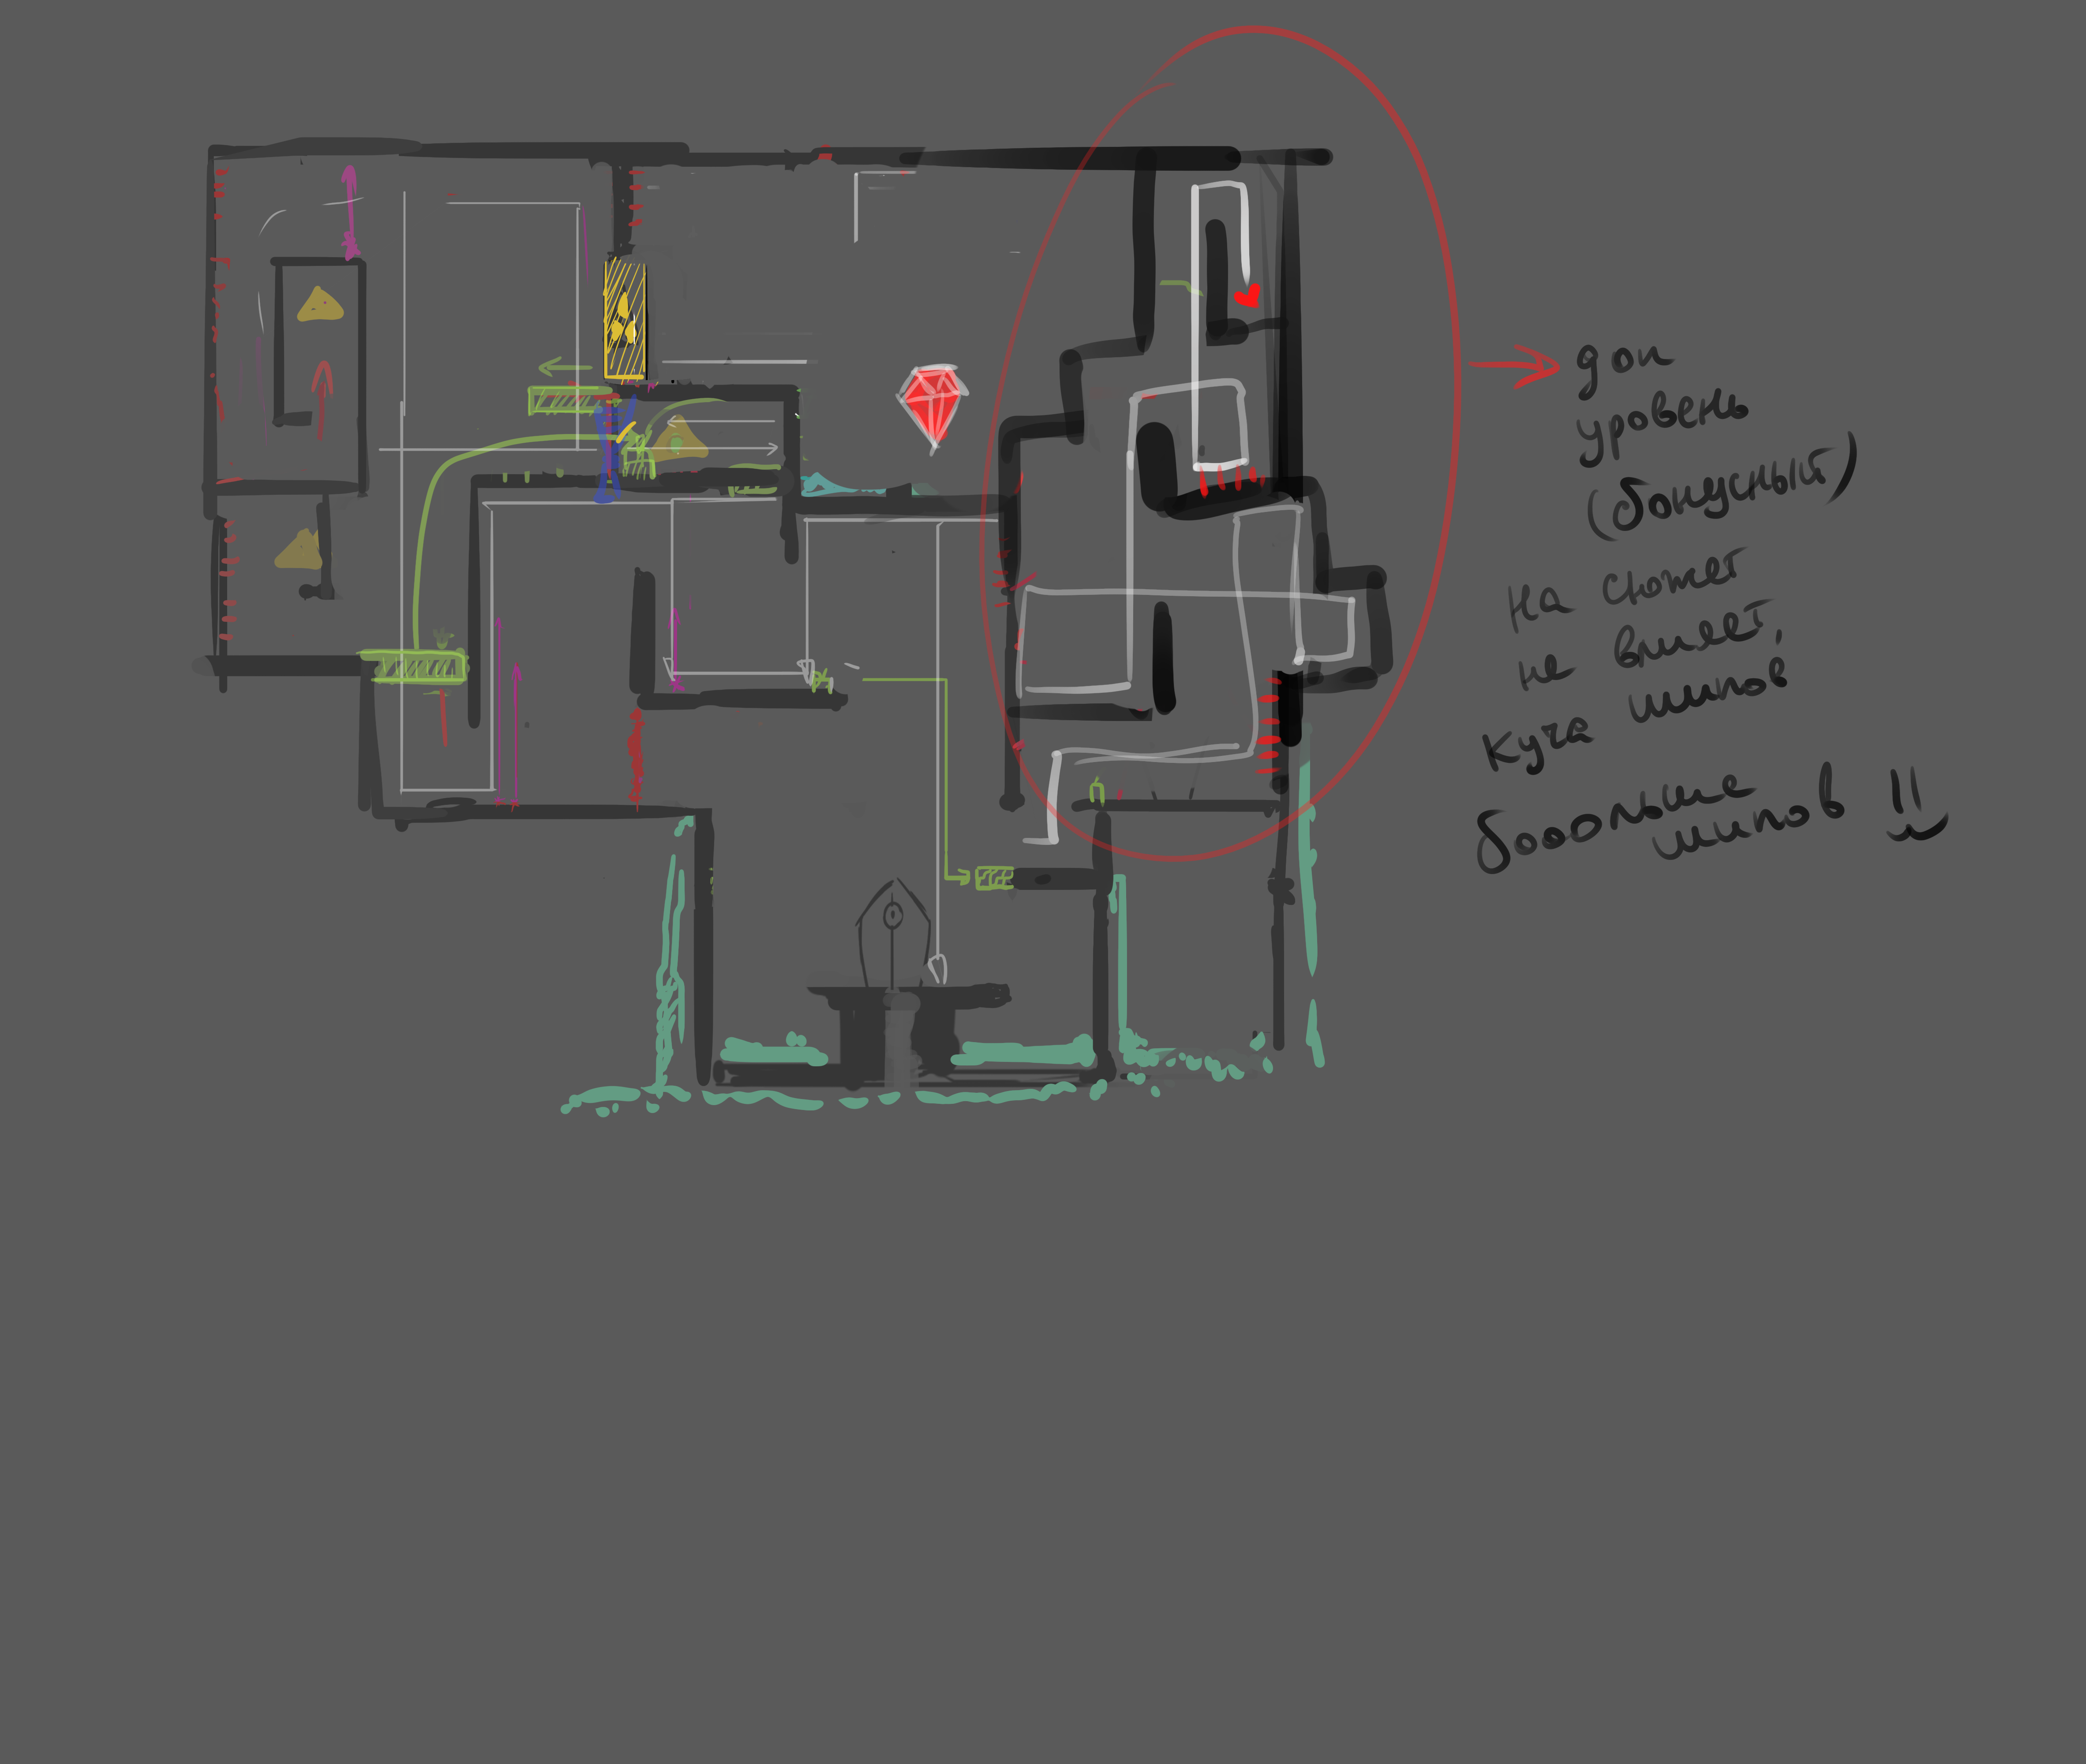 доп
уровень
(бонусный)
на сюжет
не влияет,
куча шипов
бооольше
шипов